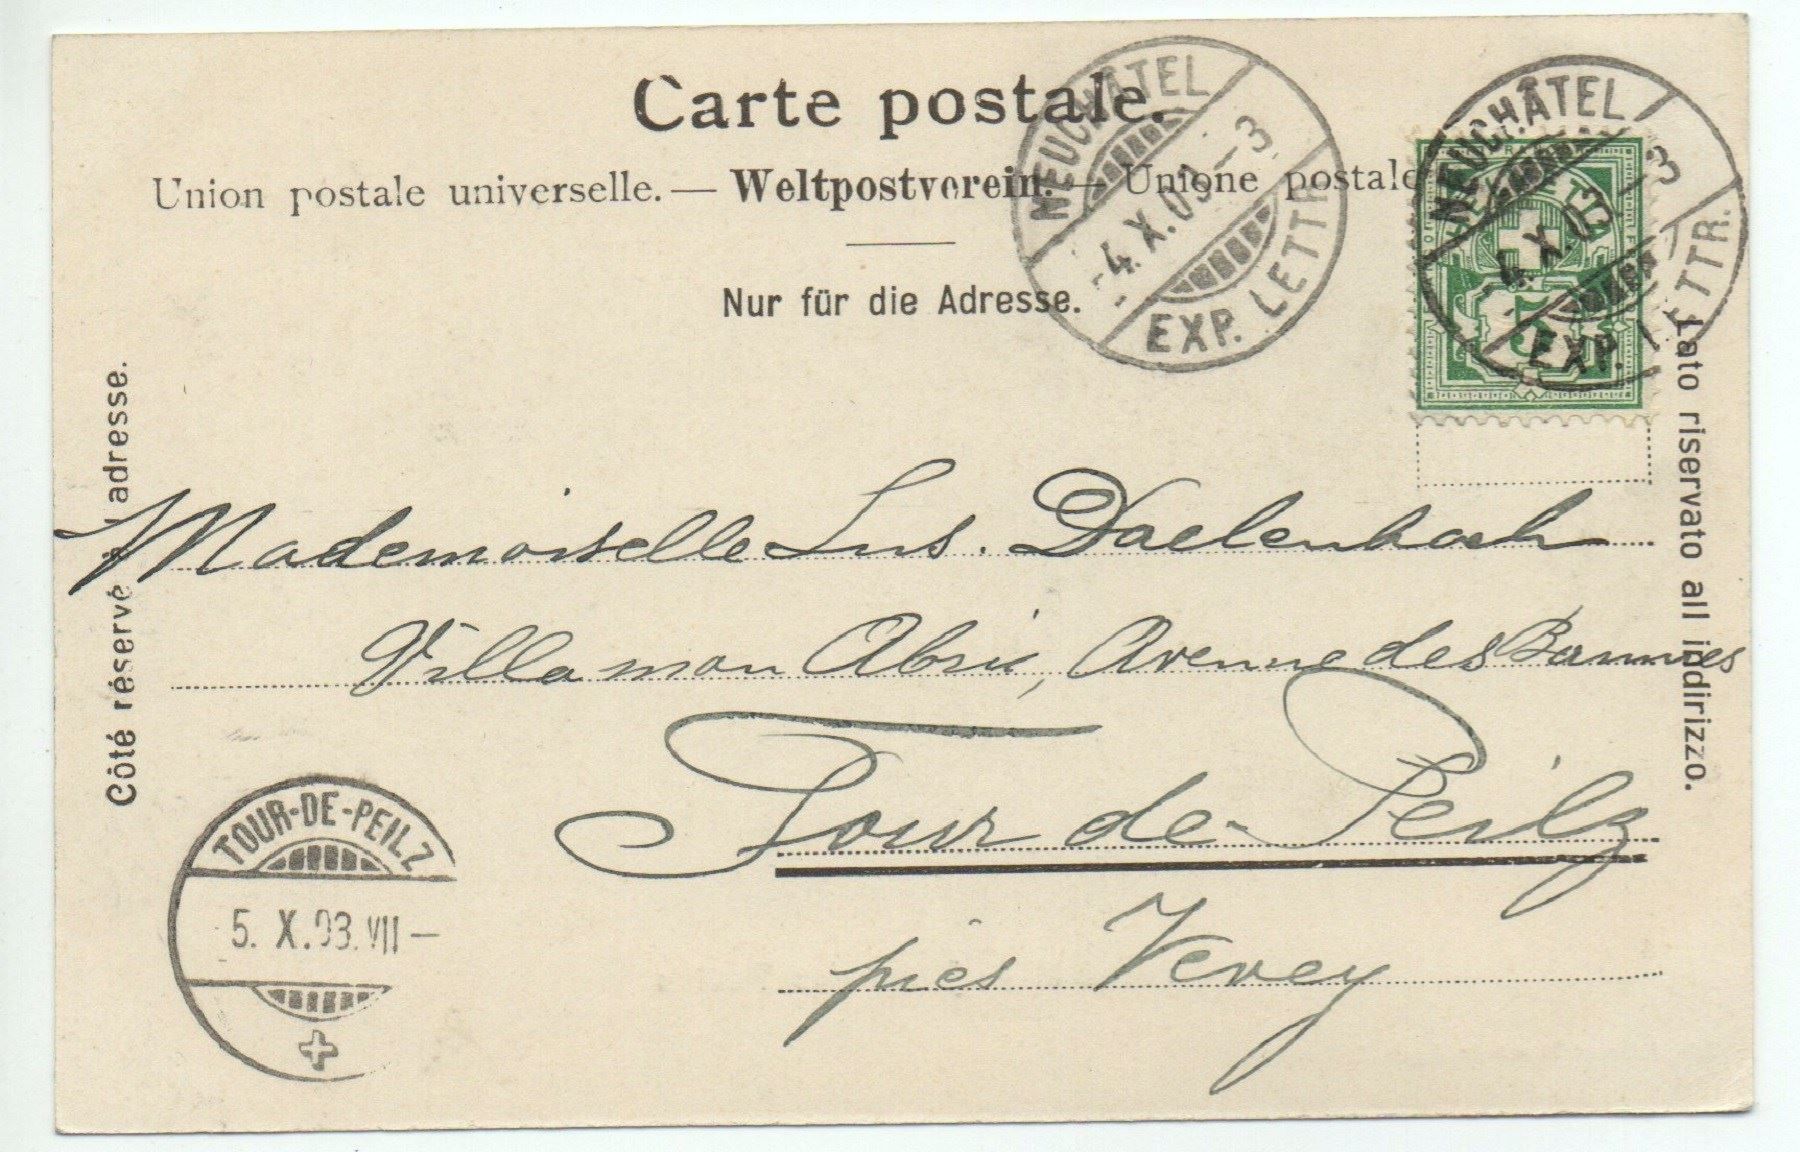 Carte postale.
Union postale universelle. — Weltpostverein. — Unione postale
Nur für die Adresse.
NEUCHÂTEL
-4.X.03.-3.
EXP. LETTR.
NEUCHÂTEL
-4.X.03-3
EXP. LETTR.
5
Côté réservé à l'adresse.
Lato riservato all indirizzo.
Mademoiselle Daelenbach
Villa mon Abri, Avenue des
Tour de-Peilz
près Vevey
TOUR-DE-PEILZ
5.X.03.VII-